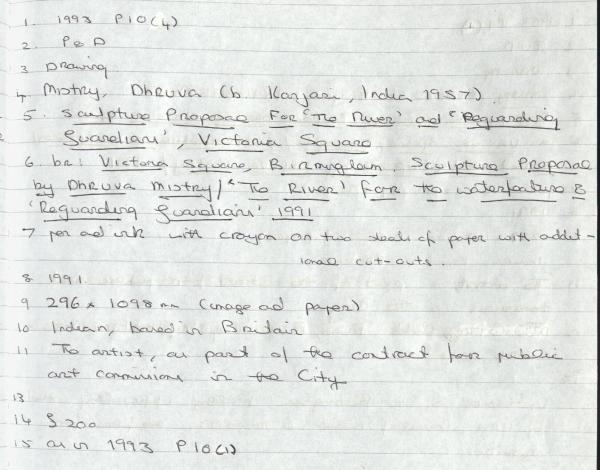 1. 1993 P10(4)
2. P&D
3 Drawing
4 Mistry, Dhruva (b. Kanjari, India 1957)
5. Sculpture Proposal For 'The River' and 'Reguarding
Guardians', Victoria Square
6. br: Victoria Square, Birmingham. Sculpture Proposal
by Dhruva Mistry / 'The River' for the waterfeature &
'Reguarding Guardians' 1991
7 pen and ink with crayon on two sheets of paper with addit-
ional cut-outs.
8 1991
9 296 x 1098 mm (image and paper)
10 Indian, based in Britain
11 The artist, as part of the contract for public
art commissions in the City
13
14 £200
15 as in 1993 P10(1)